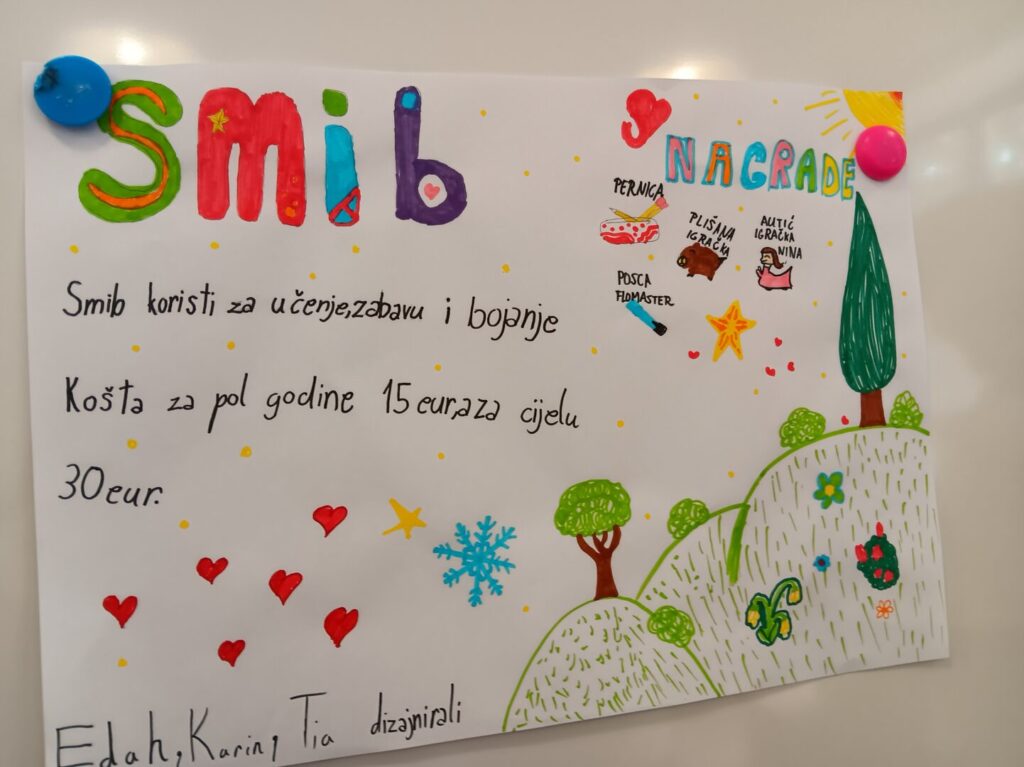 Smib
NAGRADE
PERNICA
PLIŠANA
IGRAČKA
AUTIĆ
IGRAČKA
NINA
POSCA
FLOMASTER
Smib koristi za učenje,zabavu i bojanje
Košta za pol godine 15 eur,a za cijelu
30 eur.
Edah, Karin, Tia dizajnirali